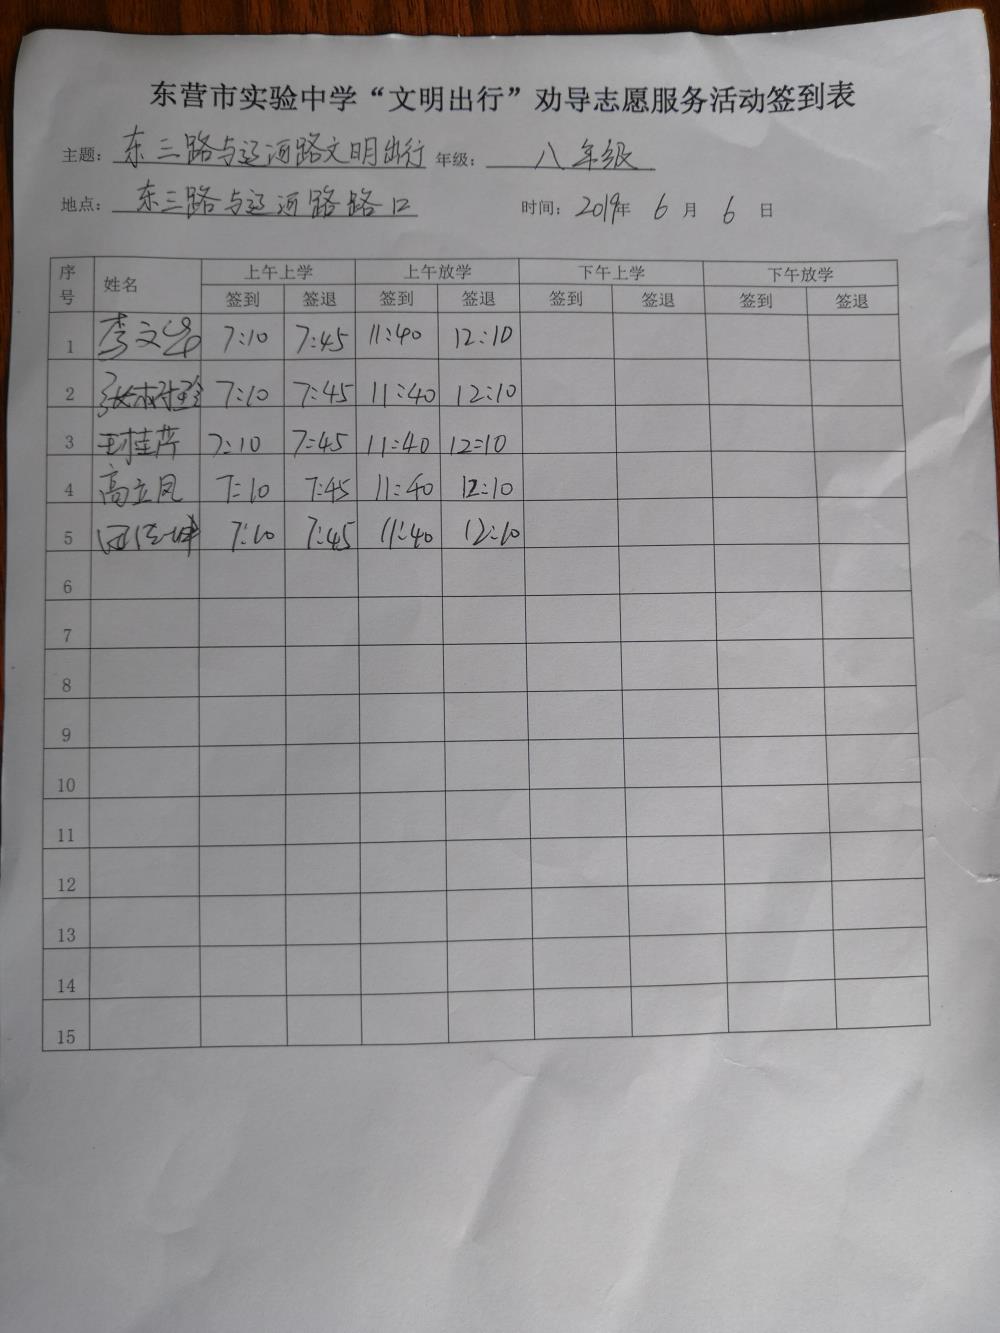 东营市实验中学“文明出行”劝导志愿服务活动签到表
主题：东三路与辽河路文明出行 年级：八年级
地点：东三路与辽河路路口 时间：2019年 6月 6日
序号 姓名 上午上学 上午放学 下午上学 下午放学
签到 签退 签到 签退 签到 签退 签到 签退
1 李文华 7:10 7:45 11:40 12:10
2 7:10 7:45 11:40 12:10
3 王桂芹 7:10 7:45 11:40 12:10
4 高立凤 7:10 7:45 11:40 12:10
5 7:10 7:45 11:40 12:10
6
7
8
9
10
11
12
13
14
15